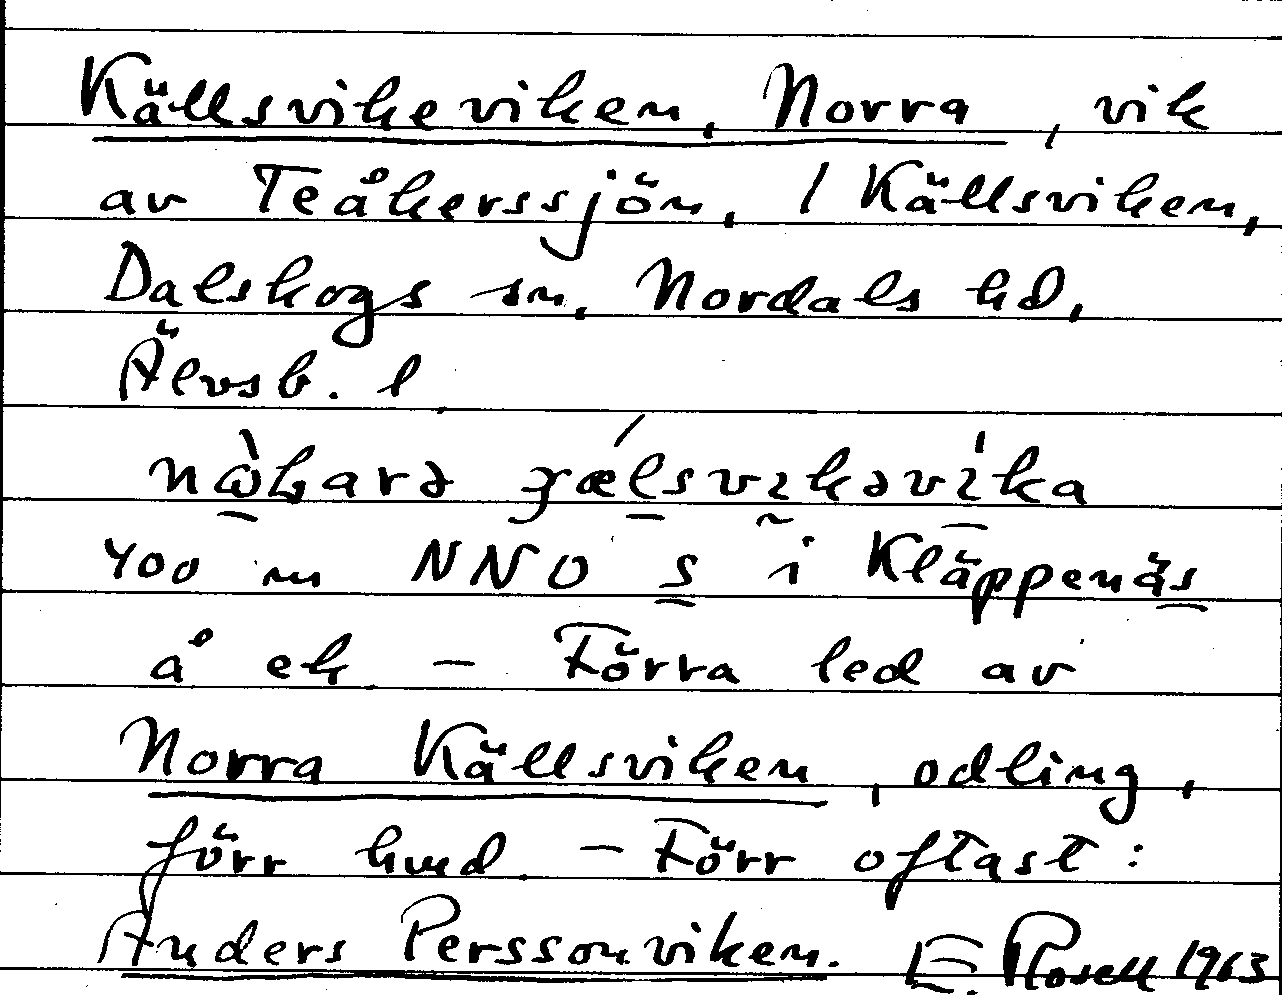 Källsvikeviken, Norra, vik
av Teåkerssjön, / Källsviken,
Dalskogs sn, Nordals hd,
Älvsb. l
400 m NNO s i Kläppenäs
å ek – Förra led av
Norra Källsviken, odling,
förr hmd – Förr oftast:
Anders Perssonviken. E. Rosell 1963